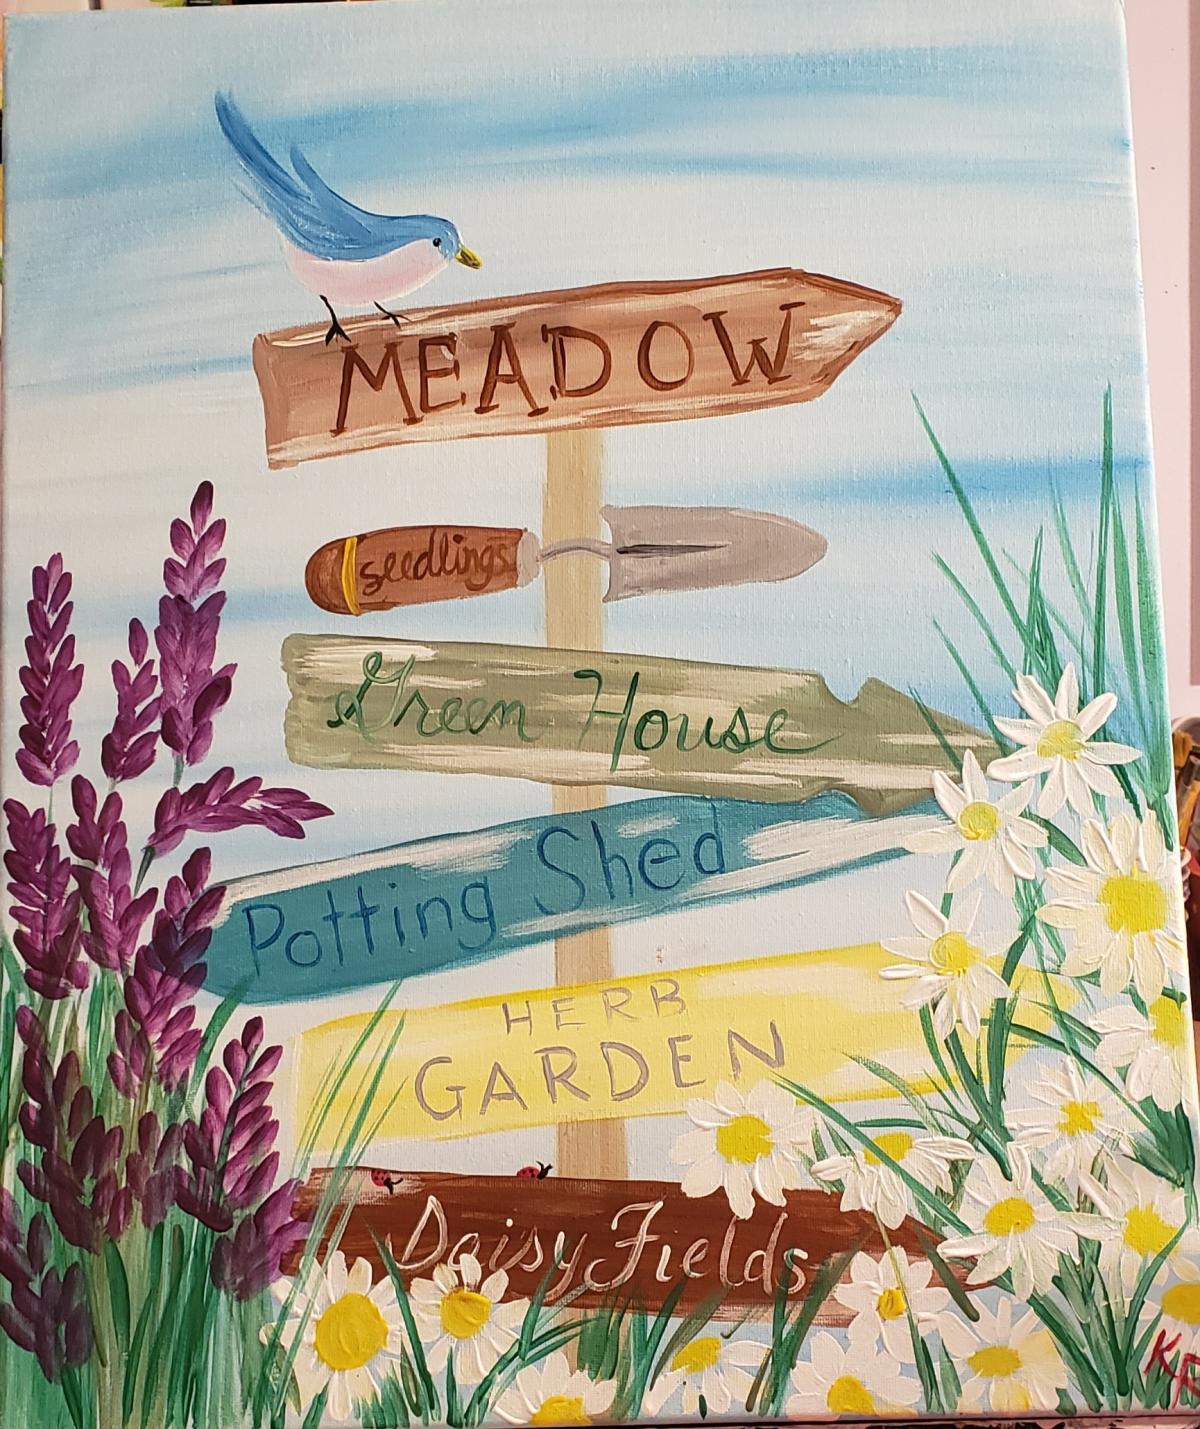 MEADOW
seedlings
Green House
Potting Shed
HERB
GARDEN
Daisy Fields